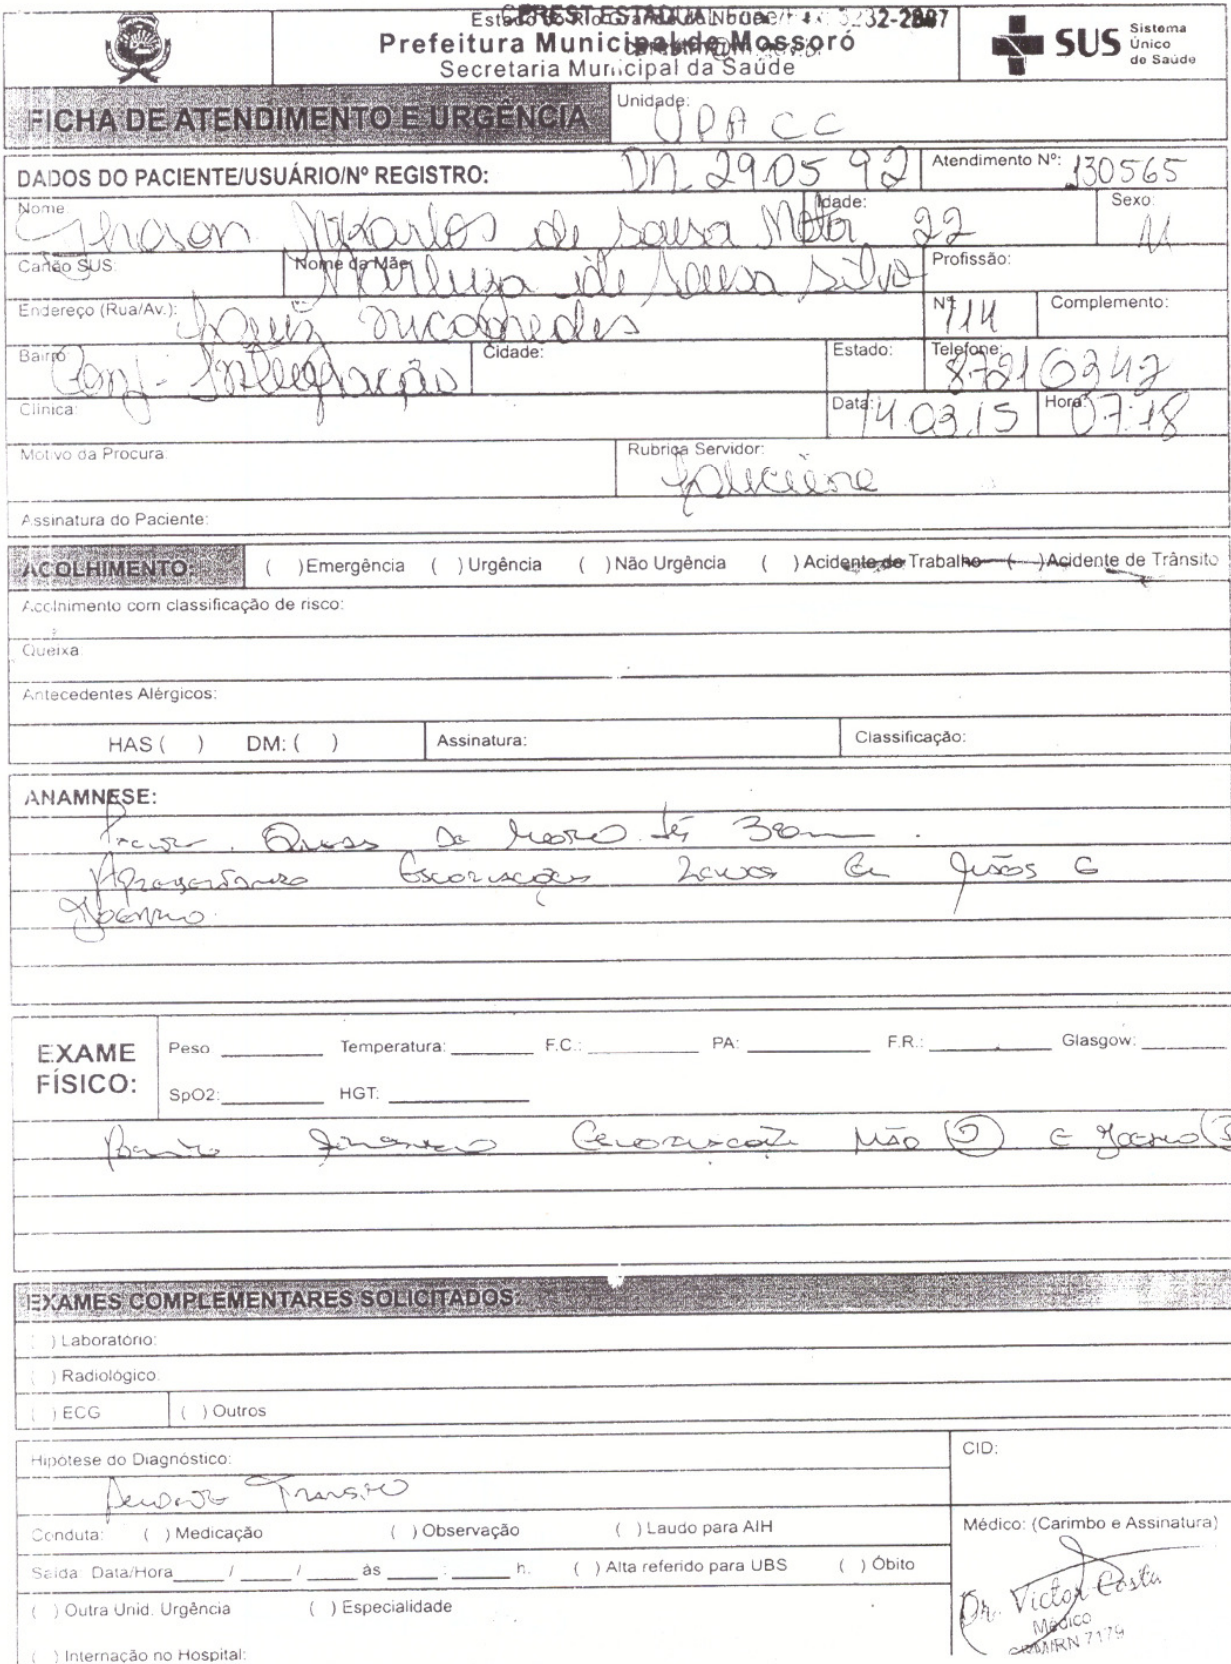 Estado do Rio Grande do Norte
CEREST ESTADUAL 3232-2887
Prefeitura Municipal de Mossoró
Secretaria Municipal da Saúde
SUS Sistema Único de Saúde
FICHA DE ATENDIMENTO E URGÊNCIA Unidade: UPA CC
DADOS DO PACIENTE/USUÁRIO/Nº REGISTRO: DN 29.05 92 Atendimento Nº: 130565
Nome: de Sousa Mota Idade: 22 Sexo: M
Cartão SUS: Nome da Mãe: Marluza de Sousa Silva Profissão:
Endereço (Rua/Av.): Nº 714 Complemento:
Bairro Conj. Integração Cidade: Estado: Telefone: 87210342
Clínica: Data: 14.03.15 Hora: 07:18
Motivo da Procura: Rubrica Servidor:
Assinatura do Paciente:
ACOLHIMENTO: ( ) Emergência ( ) Urgência ( ) Não Urgência ( ) Acidente de Trabalho ( ) Acidente de Trânsito
Acolhimento com classificação de risco:
Queixa
Antecedentes Alérgicos:
HAS ( ) DM: ( ) Assinatura: Classificação:
ANAMNESE:
de Moto
Escoriações em mãos e
Joelho.
EXAME FÍSICO: Peso Temperatura: F.C.: PA: F.R.: Glasgow:
SpO2: HGT:
Mão D e Joelho
EXAMES COMPLEMENTARES SOLICITADOS:
( ) Laboratório:
( ) Radiológico
( ) ECG ( ) Outros
Hipótese do Diagnóstico: CID:
Acidente Transito
Conduta: ( ) Medicação ( ) Observação ( ) Laudo para AIH Médico: (Carimbo e Assinatura)
Saída: Data/Hora / / às : h. ( ) Alta referido para UBS ( ) Óbito
( ) Outra Unid. Urgência ( ) Especialidade
Dr. Victor Costa
Médico
CRM/RN 7179
( ) Internação no Hospital: